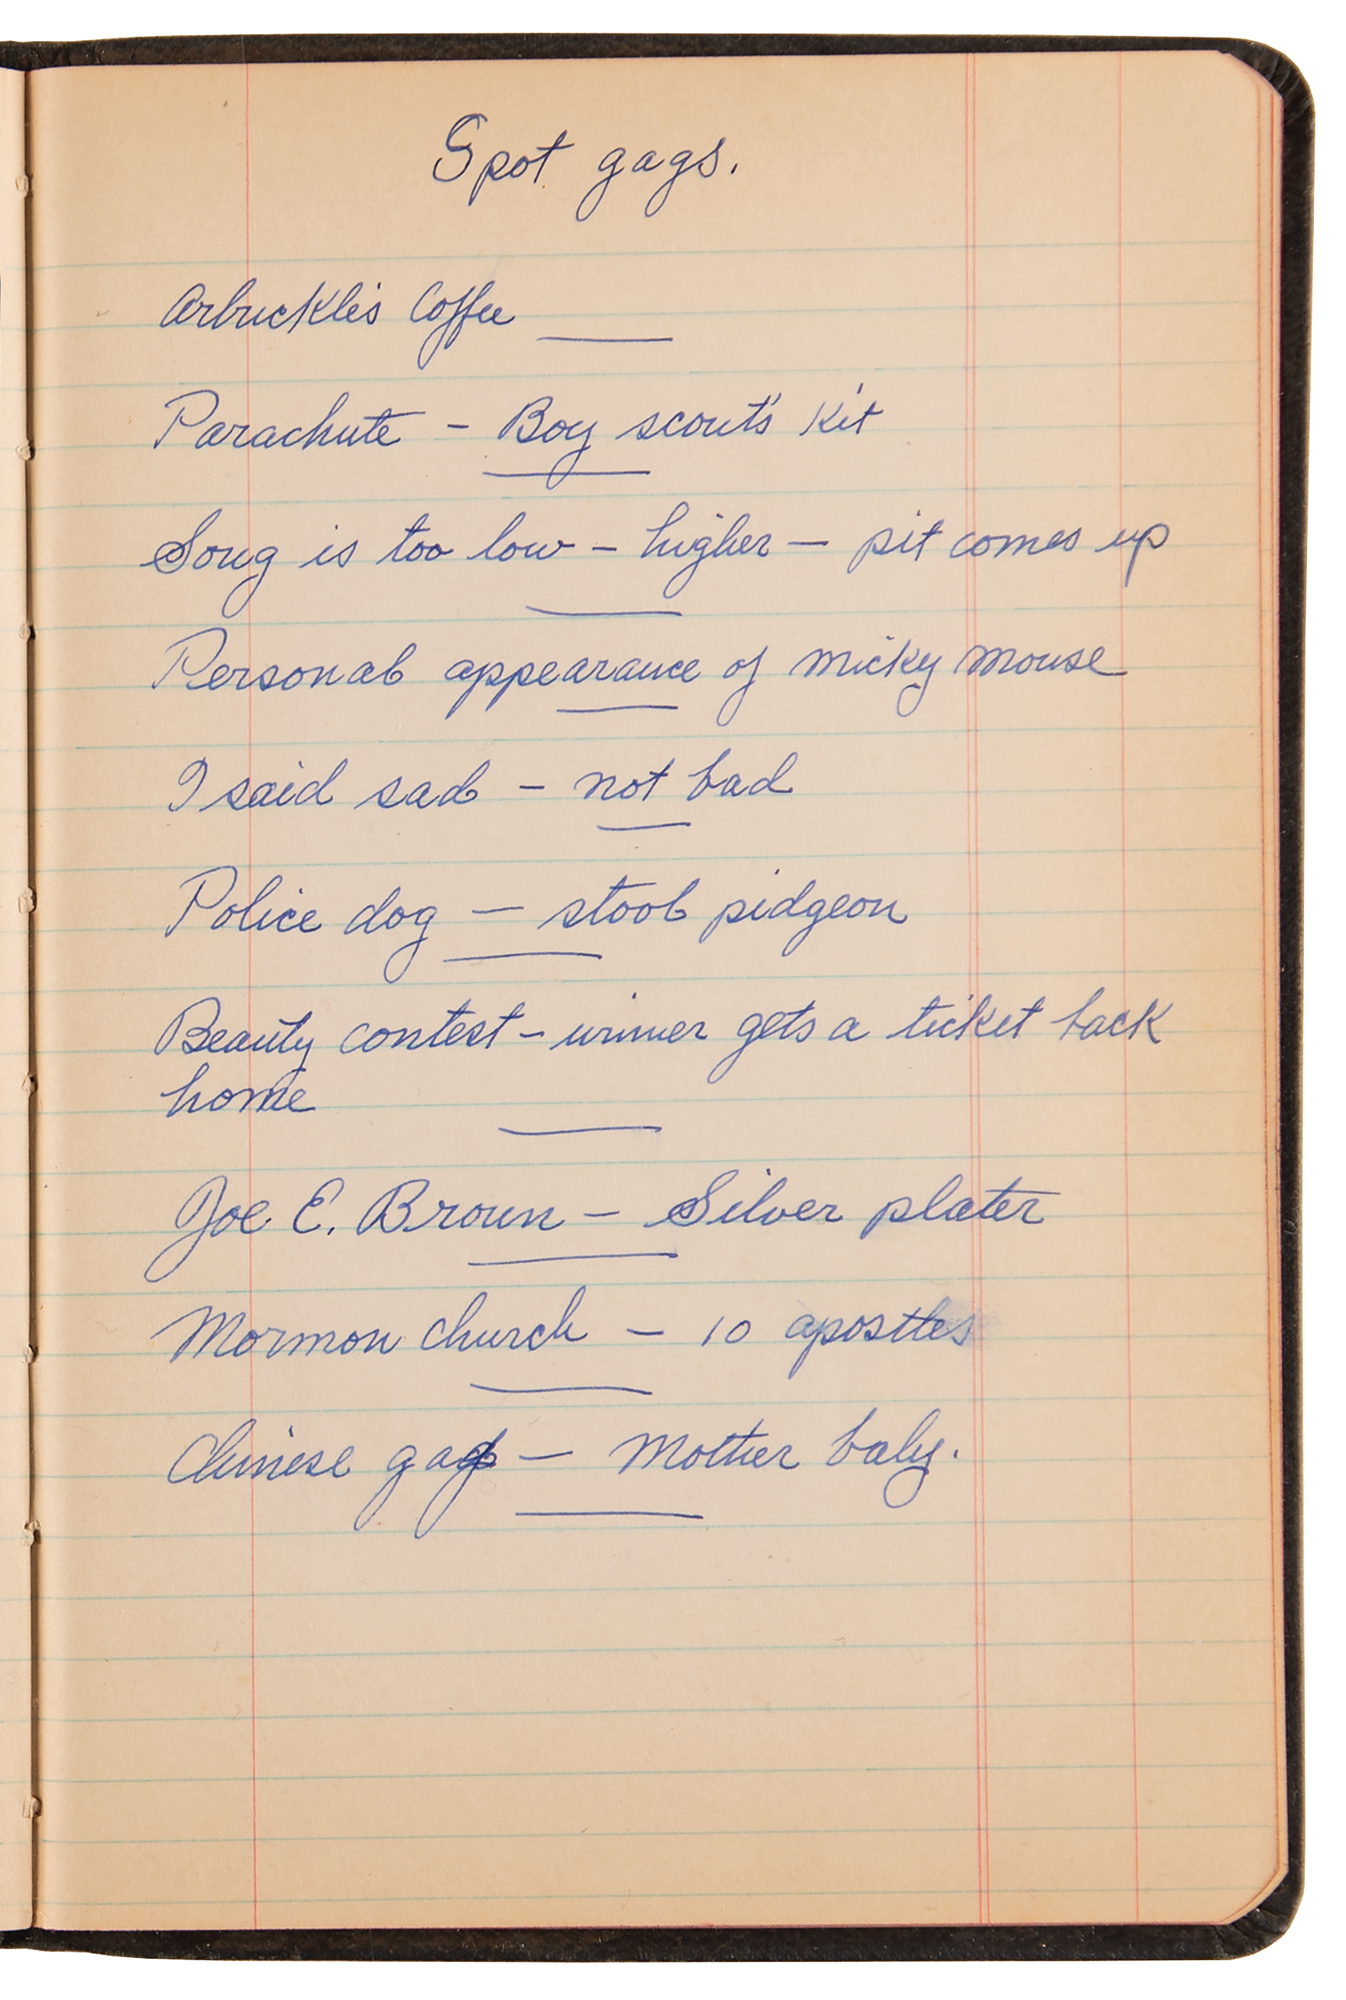 Spot gags.
Arbuckle's Coffee
Parachute - Boy scout's kit
Song is too low - higher - pit comes up
Personal appearance of Micky Mouse
I said sad - not bad
Police dog - stool pidgeon
Beauty contest - winner gets a ticket back
home
Joe E. Brown - Silver plater
Mormon church - 10 apostles
Chinese gag - Mother baby.